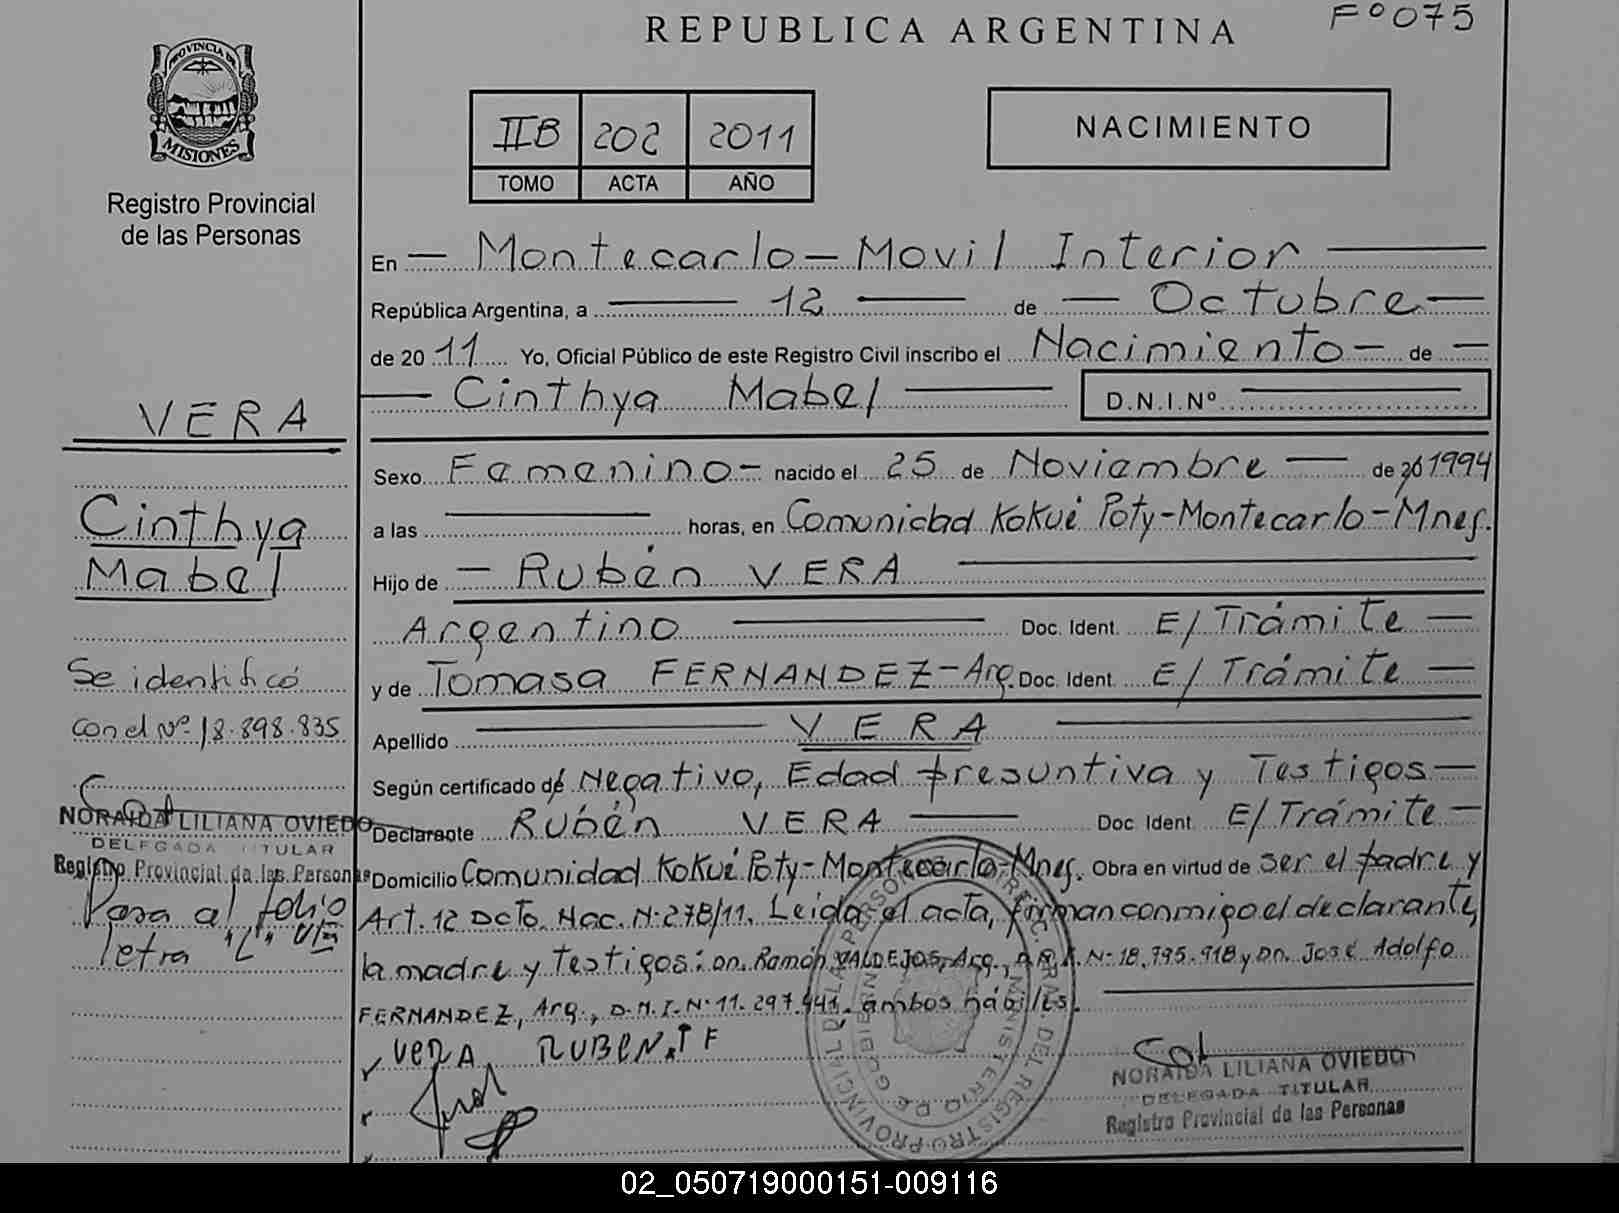 REPUBLICA ARGENTINA
Fº 075
PROVINCIA DE
MISIONES
Registro Provincial
de las Personas
IIB 202 2011
TOMO ACTA AÑO
NACIMIENTO
En — Montecarlo — Movil Interior —
República Argentina, a — 12 — de — Octubre —
de 20 11 Yo, Oficial Público de este Registro Civil inscribo el Nacimiento — de —
— Cinthya Mabel — D.N.I.Nº —
VERA
Cinthya
Mabel
Se identificó
con el Nº 18.898.835
NORAIDA LILIANA OVIEDO
DELEGADA TITULAR
Registro Provincial de las Personas
Pasa al folio
letra "L"
Sexo Femenino — nacido el 25 de Noviembre — de 20 1994
a las — horas, en Comunidad Kokué Poty - Montecarlo - Mnes.
Hijo de — Rubén VERA —
Argentino — Doc. Ident. E/ Trámite —
y de Tomasa FERNANDEZ - Arg. Doc. Ident. E/ Trámite —
Apellido — VERA —
Según certificado de Negativo, Edad presuntiva y Testigos —
Declarante Rubén VERA — Doc. Ident. E/ Trámite —
Domicilio Comunidad Kokué Poty - Montecarlo - Mnes. Obra en virtud de ser el padre y
Art. 12 Dcto. Nac. N: 278/11. Leida el acta, firman conmigo el declarante,
la madre y testigos: Dn. Ramón VALDEJOS, Arg., D.N.I. N: 18.795.918 y Dn. José Adolfo
FERNANDEZ, Arg., D.N.I. N: 11.297.441, ambos hábiles.
VERA RUBEN
TF
REGISTRO PROVINCIAL DE LAS PERSONAS
MINISTERIO DE GOBIERNO
NORAIDA LILIANA OVIEDO
DELEGADA TITULAR
Registro Provincial de las Personas
02_050719000151-009116